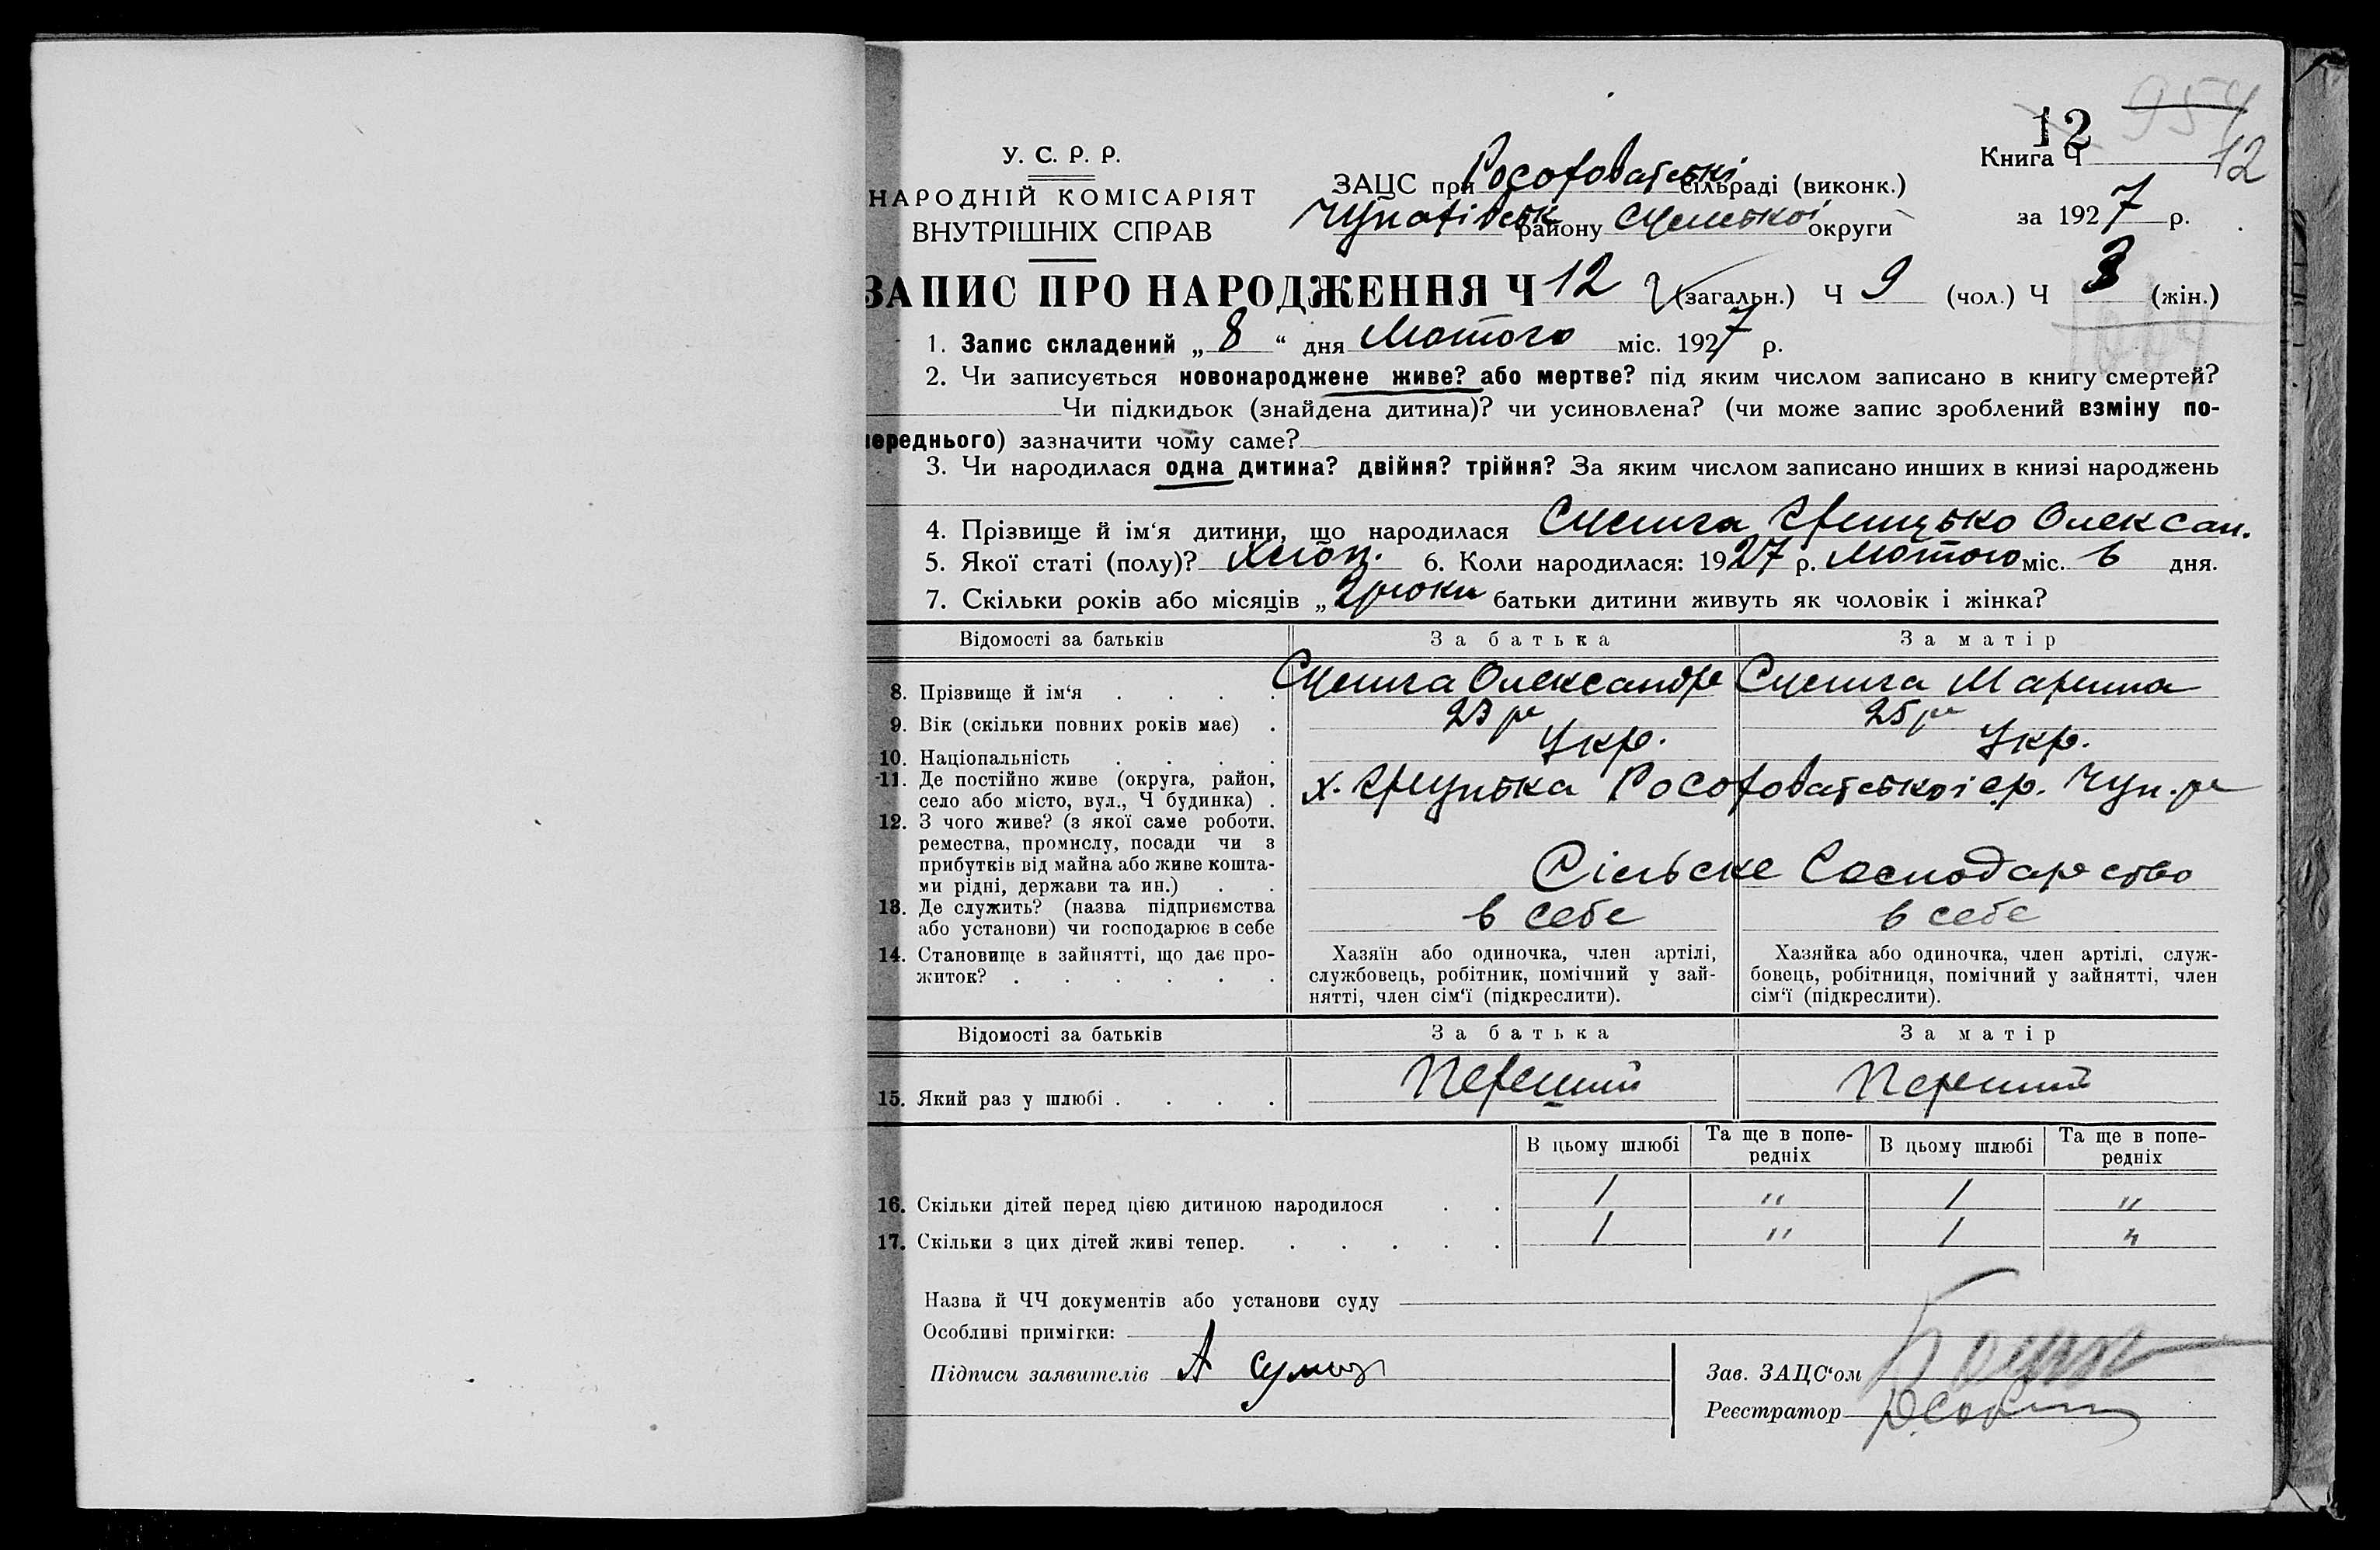 954
12
12
У. С. Р. Р.
НАРОДНІЙ КОМІСАРІЯТ
ВНУТРІШНІХ СПРАВ
ЗАЦС при сільраді (виконк.)
району Сумської округи
Книга Ч
за 1927 р.
ЗАПИС ПРО НАРОДЖЕННЯ Ч 12 (загальн.) Ч 9 (чол.) Ч 3 (жін.)
1. Запис складений „ 8 “ дня Лютого міс. 1927 р.
2. Чи записується новонароджене живе? або мертве? під яким числом записано в книгу смертей?
Чи підкидьок (знайдена дитина)? чи усиновлена? (чи може запис зроблений взміну по-
переднього) зазначити чому саме?
3. Чи народилася одна дитина? двійня? трійня? За яким числом записано инших в книзі народжень
4. Прізвище й ім‘я дитини, що народилася Грицько Олексан.
5. Якої статі (полу)? Хлоп. 6. Коли народилася: 1927 р. Лютого міс. 6 дня.
7. Скільки років або місяців „ 2 роки батьки дитини живуть як чоловік і жінка?
Відомості за батьків За батька За матір
8. Прізвище й ім‘я . . . . Олександр Марина
9. Вік (скільки повних років має) . 23 р 25 р
10. Національність . . . . Укр. Укр.
11. Де постійно живе (округа, район,
село або місто, вул., Ч будинка) . х. Грицька ср. Чуп. р
12. З чого живе? (з якої саме роботи,
ремества, промислу, посади чи з
прибутків від майна або живе кошта-
ми рідні, держави та ин.) . . Сільське Господарство
13. Де служить? (назва підприємства
або установи) чи господарює в себе в себе в себе
14. Становище в зайнятті, що дає про-
житок? . . . . . .
Хазяїн або одиночка, член артілі,
службовець, робітник, помічний у зай-
нятті, член сім‘ї (підкреслити).
Хазяйка або одиночка, член артілі, служ-
бовець, робітниця, помічний у зайнятті, член
сім‘ї (підкреслити).
Відомості за батьків За батька За матір
15. Який раз у шлюбі . . . . Перший Перший
В цьому шлюбі Та ще в попе-
редніх В цьому шлюбі Та ще в попе-
редніх
16. Скільки дітей перед цією дитиною народилося . . 1 " 1 "
17. Скільки з цих дітей живі тепер. . . . . . 1 " 1 "
Назва й ЧЧ документів або установи суду
Особливі примігки:
Підписи заявителів А
Зав. ЗАЦС‘ом
Реєстратор